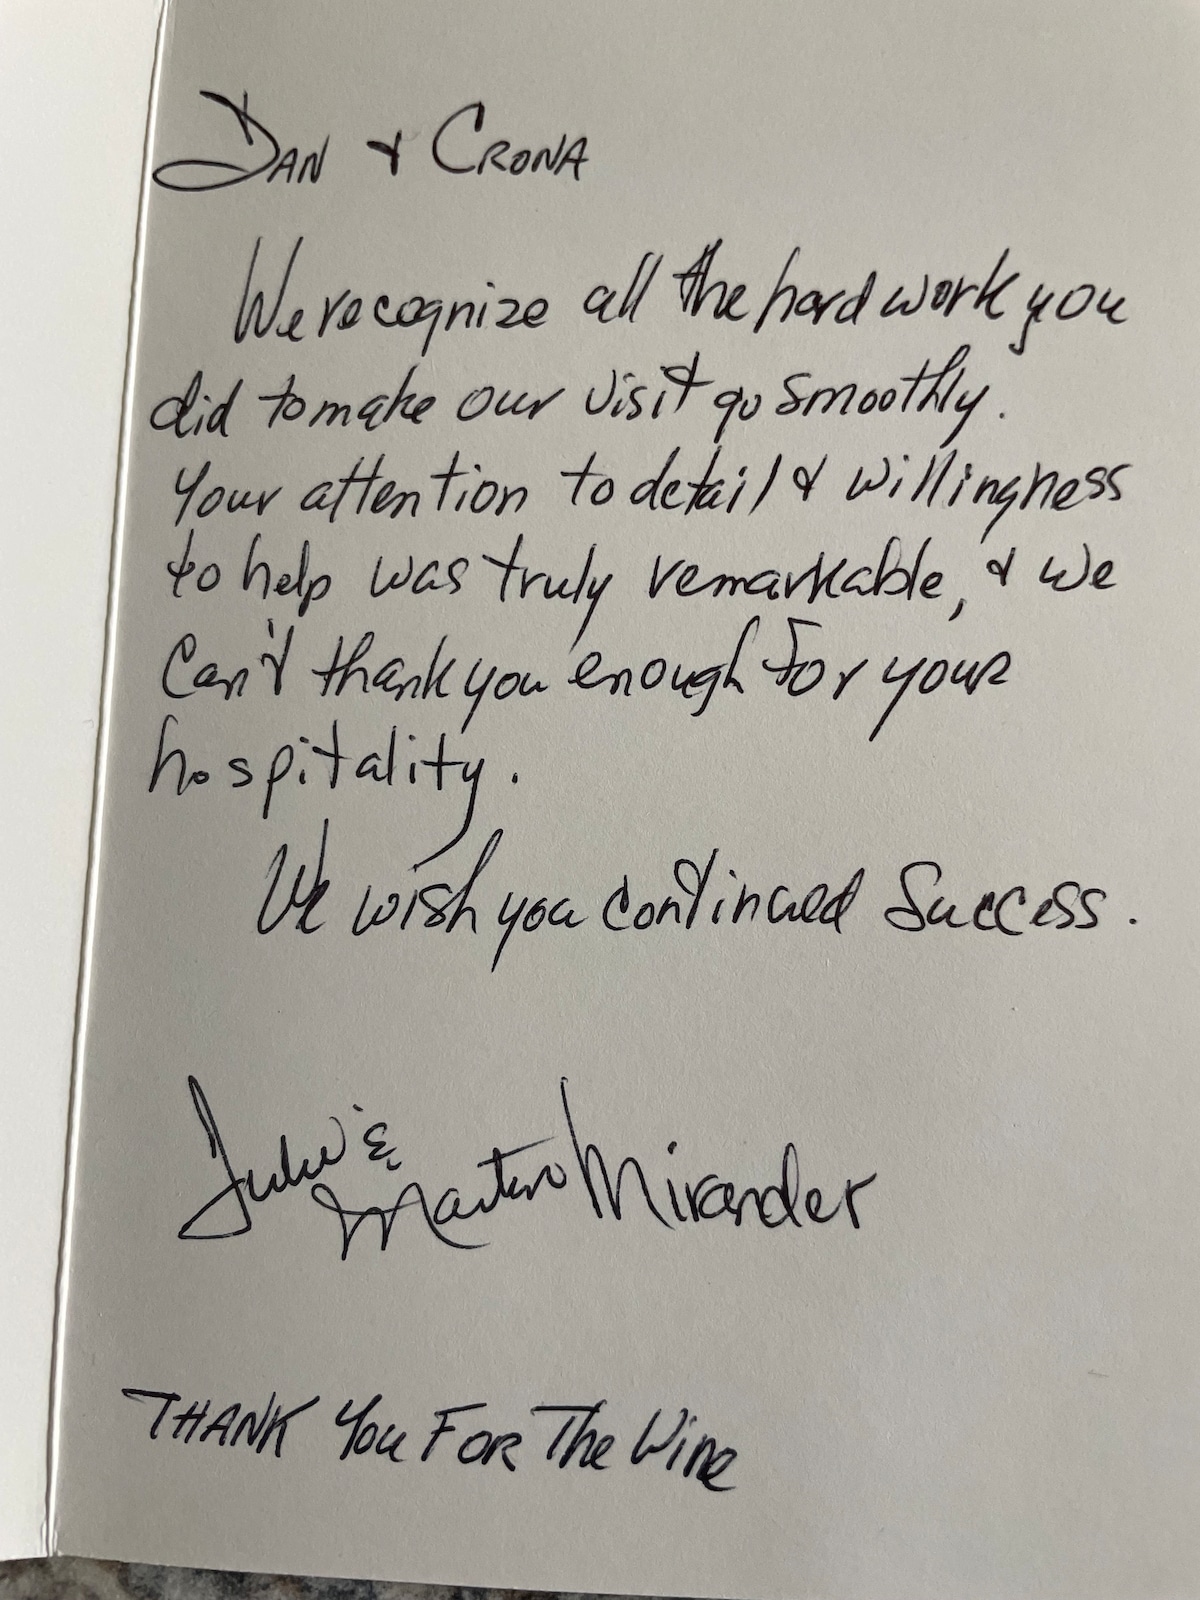 DAN & CRONA
We recognize all the hard work you
did to make our visit go smoothly.
Your attention to detail & willingness
to help was truly remarkable, & we
can't thank you enough for your
hospitality.
We wish you continued success.
Julie &
Martin Mirander
THANK You FOR The Wine